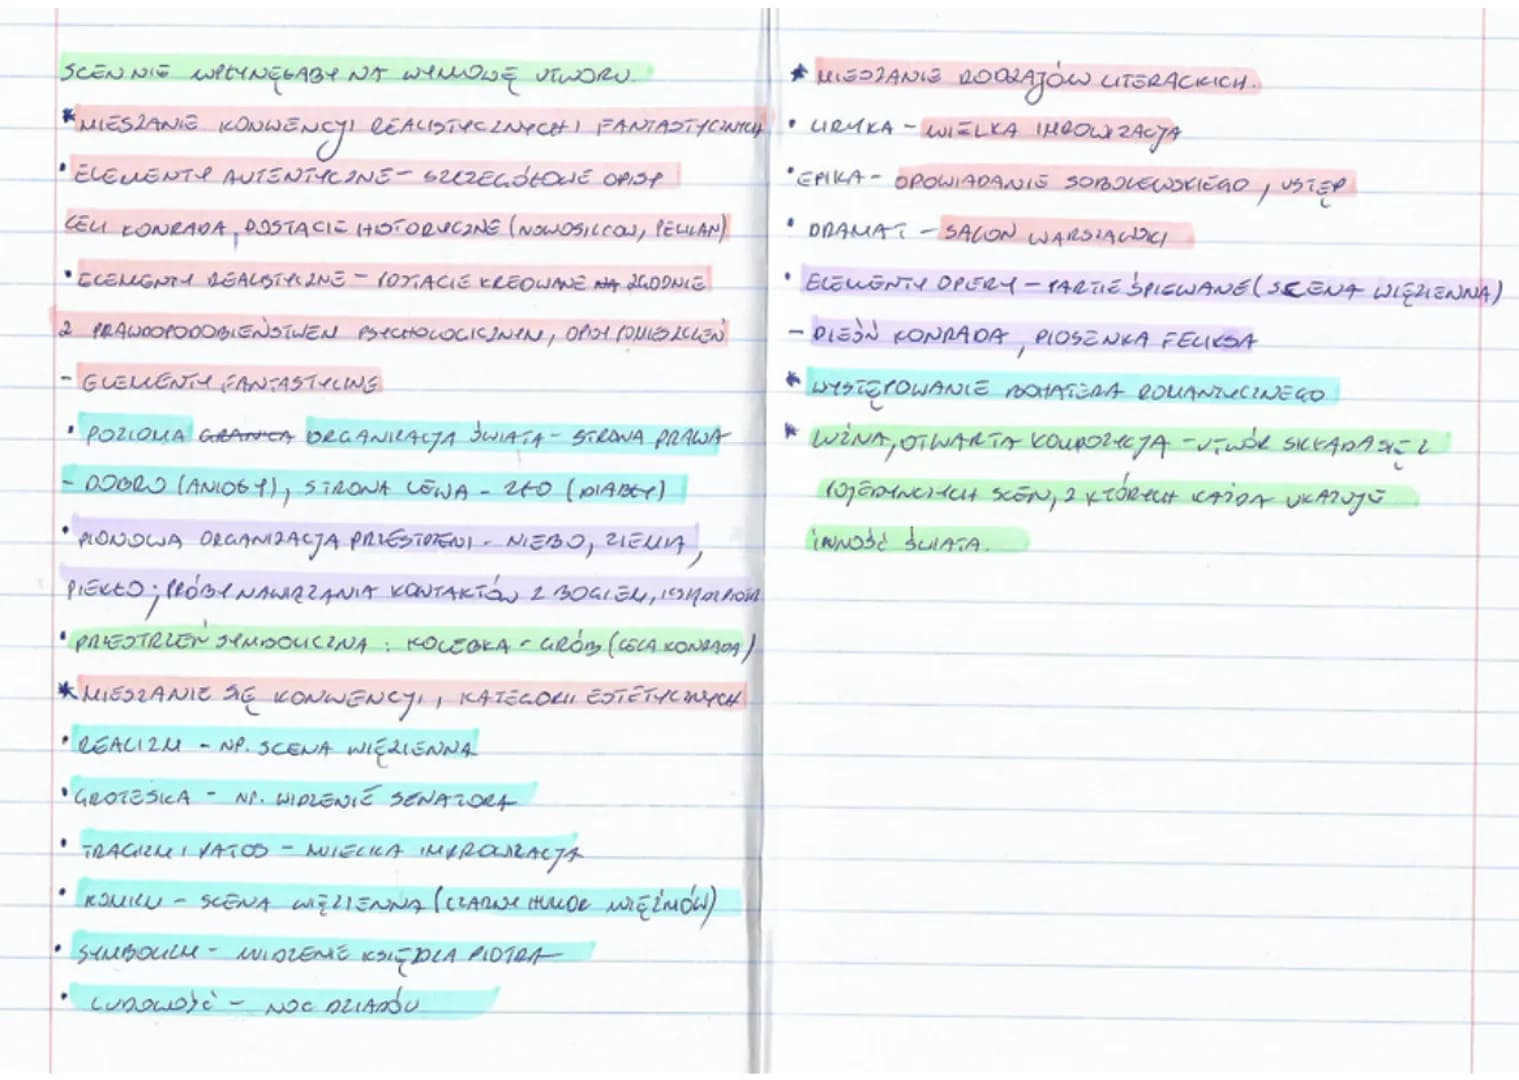 SCEN NIE WPŁYNĘŁABY NA WYMOWĘ UTWORU.
* MIESZANIE KONWENCJI REALISTYCZNYCH I FANTASTYCZNYCH
• ELEMENTY AUTENTYCZNE - SZCZEGÓŁOWE OPISY
CELI KONRADA, POSTACIE HISTORYCZNE (NOWOSILCOW, PELIKAN)
• ELEMENTY REALISTYCZNE - POSTACIE KREOWANE NA ZGODNIE
Z PRAWDOPODOBIEŃSTWEM PSYCHOLOGICZNYM, OPISY POMIESZCZEŃ
- ELEMENTY FANTASTYCZNE
• POZIOMA GRANICA ORGANIZACJA ŚWIATA - STRONA PRAWA
- DOBRO (ANIOŁY), STRONA LEWA - ZŁO (DIABŁY)
• PIONOWA ORGANIZACJA PRZESTRZENI - NIEBO, ZIEMIA,
PIEKŁO; PRÓBY NAWIĄZANIA KONTAKTÓW Z BOGIEM,
• PRZESTRZEŃ SYMBOLICZNA : KOLEBKA - GRÓB (CELA KONRADA)
* MIESZANIE SIĘ KONWENCJI, KATEGORII ESTETYCZNYCH
• REALIZM - NP. SCENA WIĘZIENNA
• GROTESKA - NP. WIDZENIE SENATORA
• TRAGIZM I PATOS - WIELKA IMPROWIZACJA
• KOMIZM - SCENA WIĘZIENNA (CZARNY HUMOR WIĘŹNIÓW)
• SYMBOLIZM - WIDZENIE KSIĘDZA PIOTRA
• LUDOWOŚĆ - NOC DZIADÓW
* MIESZANIE RODZAJÓW LITERACKICH.
• LIRYKA - WIELKA IMPROWIZACJA
• EPIKA - OPOWIADANIE SOBOLEWSKIEGO, USTĘP
• DRAMAT - SALON WARSZAWSKI
• ELEMENTY OPERY - PARTIE ŚPIEWANE (SCENA WIĘZIENNA)
- PIEŚŃ KONRADA, PIOSENKA FELIKSA
* WYSTĘPOWANIE BOHATERA ROMANTYCZNEGO
* LUŹNA, OTWARTA KOMPOZYCJA - UTWÓR SKŁADA SIĘ Z
POJEDYNCZYCH SCEN, Z KTÓRYCH KAŻDA UKAZUJE
INNOŚĆ ŚWIATA.